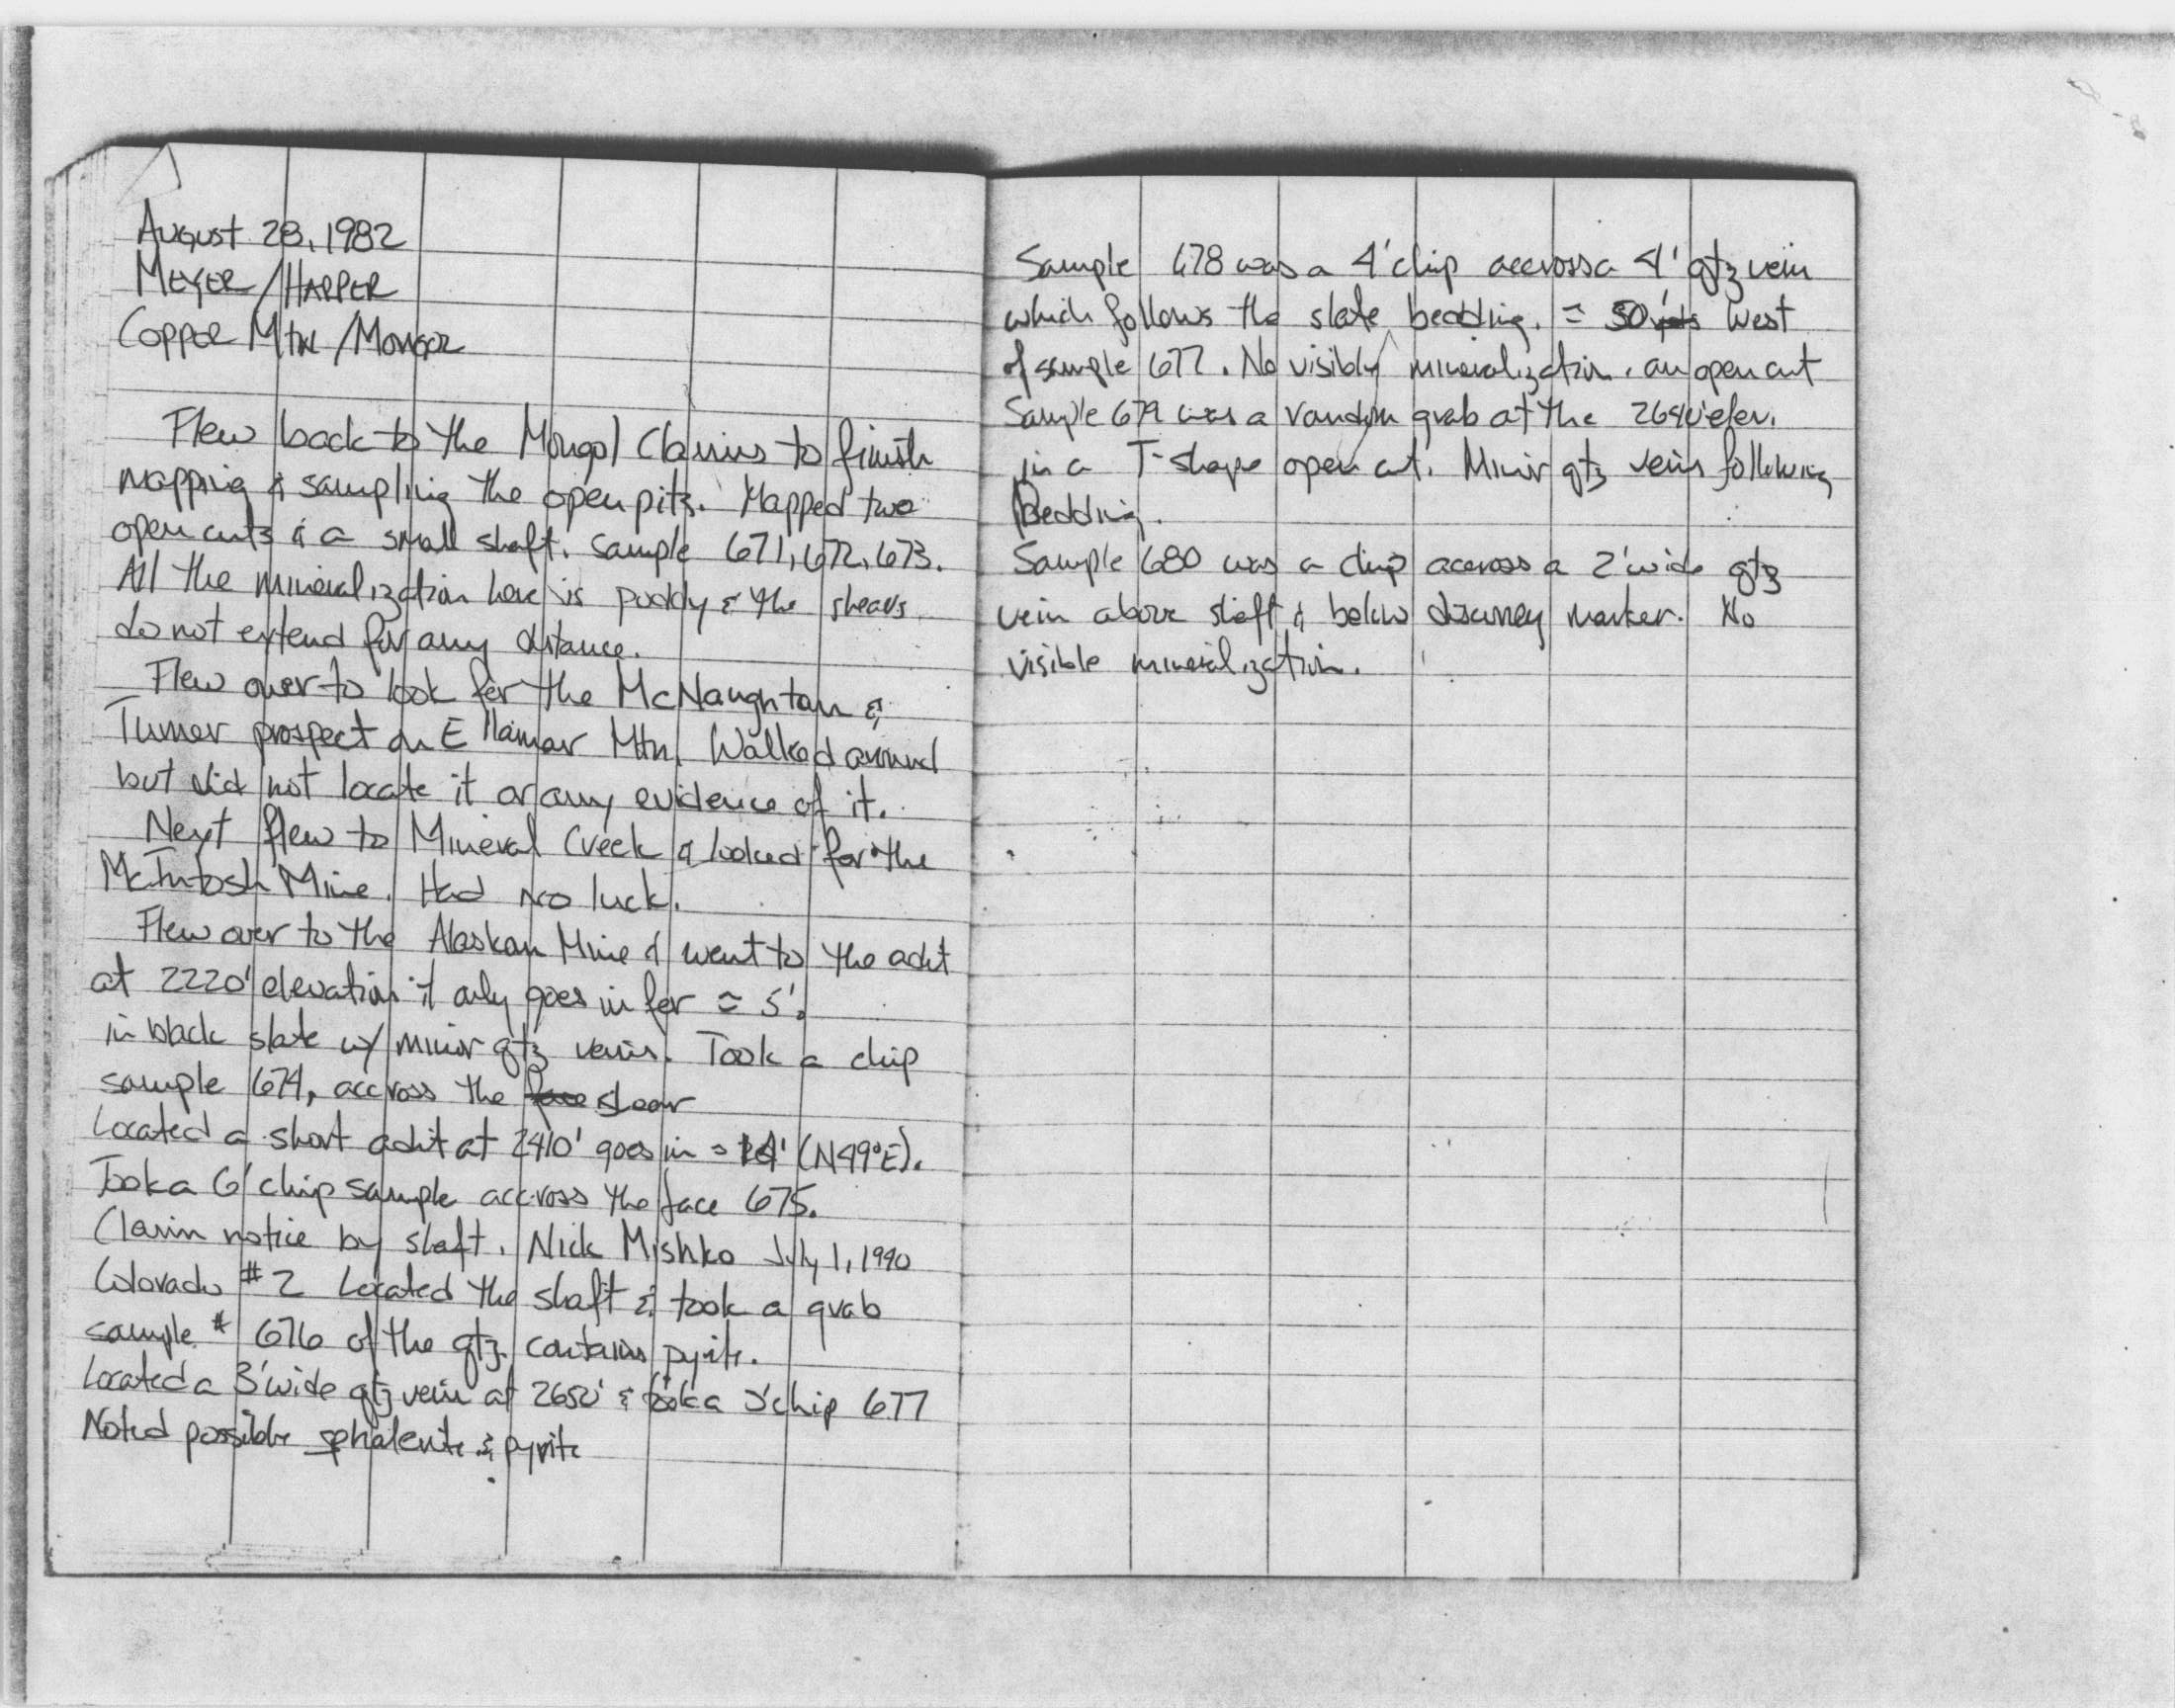 August 28, 1982
MEYER/HARPER
COPPER MTN/MONGOL
Flew back to the Mongol Claims to finish
mapping & sampling the open pits. Mapped two
open cuts & a small shaft. Sample 671, 672, 673.
All the mineralization here is poddy & the shears
do not extend for any distance.
Flew over to look for the McNaughtan &
Turner prospect on Ellamar Mtn. Walked around
but did not locate it or any evidence of it.
Next flew to Mineral Creek & looked for the
McIntosh Mine. Had no luck.
Flew over to the Alaskan Mine & went to the adit
at 2220' elevation it only goes in for ≈ 5'.
in black slate w/ minor qtz veins. Took a chip
sample 674, accross the shear
Located a short adit at 2410' goes in ≈ 14' (N49°E).
Took a 6' chip sample accross the face 675.
Claim notice by shaft. Nick Mishko July 1, 1990
Colorado #2 Located the shaft & took a grab
sample # 676 of the qtz. contains pyrite.
Located a 3' wide qtz vein at 2650' & took a 3' chip 677
Noted possible sphalerite & pyrite
Sample 678 was a 4' chip accross a 4' qtz vein
which follows the slate bedding. ≈ 50' West
of sample 677. No visibly mineralization. an open cut
Sample 679 was a random grab at the 2640' elev.
in a T-shape open cut. Minor qtz veins following
Bedding.
Sample 680 was a chip accross a 2' wide qtz
vein above shaft & below discovery marker. No
visible mineralization.